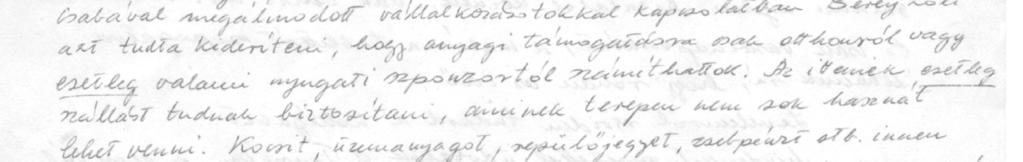 Csabával megálmodott vállalkozásotokkal kapcsolatban Berey Zoli
azt tudta kideríteni, hogy anyagi támogatásra csak otthonról vagy
esetleg valami nyugati szponzortól számíthattok. Az itteniek esetleg
szállást tudnak biztosítani, aminek terepen nem sok hasznát
lehet venni. Kocsit, üzemanyagot, repülőjegyet, zsebpénzt stb. innen